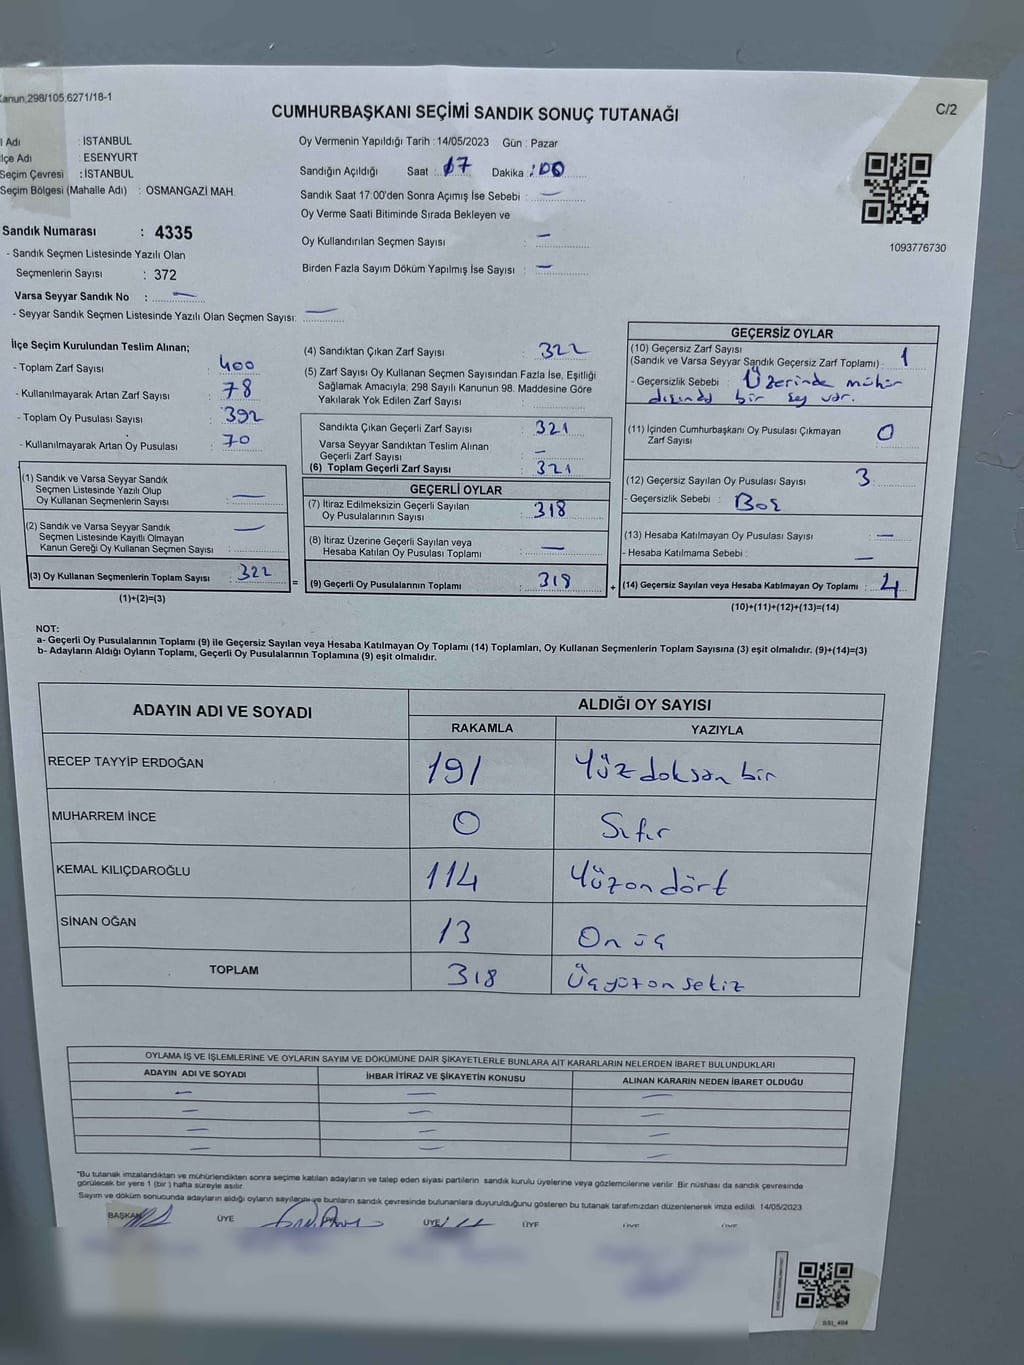 Kanun,298/105,6271/18-1
CUMHURBAŞKANI SEÇİMİ SANDIK SONUÇ TUTANAĞI
C/2
l Adı : İSTANBUL
lçe Adı : ESENYURT
Seçim Çevresi : İSTANBUL
Seçim Bölgesi (Mahalle Adı) : OSMANGAZİ MAH.
Oy Vermenin Yapıldığı Tarih : 14/05/2023 Gün : Pazar
Sandığın Açıldığı Saat : 17 Dakika : 00
Sandık Saat 17:00'den Sonra Açımış İse Sebebi : —
Oy Verme Saati Bitiminde Sırada Bekleyen ve
Oy Kullandırılan Seçmen Sayısı : —
Birden Fazla Sayım Döküm Yapılmış İse Sayısı : —
1093776730
Sandık Numarası : 4335
- Sandık Seçmen Listesinde Yazılı Olan
Seçmenlerin Sayısı : 372
Varsa Seyyar Sandık No : —
- Seyyar Sandık Seçmen Listesinde Yazılı Olan Seçmen Sayısı: —
İlçe Seçim Kurulundan Teslim Alınan;
- Toplam Zarf Sayısı : 400
- Kullanılmayarak Artan Zarf Sayısı : 78
- Toplam Oy Pusulası Sayısı : 392
- Kullanılmayarak Artan Oy Pusulası : 70
(1) Sandık ve Varsa Seyyar Sandık
Seçmen Listesinde Yazılı Olup
Oy Kullanan Seçmenlerin Sayısı : —
(2) Sandık ve Varsa Seyyar Sandık
Seçmen Listesinde Kayıtlı Olmayan
Kanun Gereği Oy Kullanan Seçmen Sayısı : —
(3) Oy Kullanan Seçmenlerin Toplam Sayısı : 322
(1)+(2)=(3)
(4) Sandıktan Çıkan Zarf Sayısı : 322
(5) Zarf Sayısı Oy Kullanan Seçmen Sayısından Fazla İse, Eşitliği
Sağlamak Amacıyla; 298 Sayılı Kanunun 98. Maddesine Göre
Yakılarak Yok Edilen Zarf Sayısı :
Sandıkta Çıkan Geçerli Zarf Sayısı : 321
Varsa Seyyar Sandıktan Teslim Alınan
Geçerli Zarf Sayısı : —
(6) Toplam Geçerli Zarf Sayısı : 321
GEÇERLİ OYLAR
(7) İtiraz Edilmeksizin Geçerli Sayılan
Oy Pusulalarının Sayısı : 318
(8) İtiraz Üzerine Geçerli Sayılan veya
Hesaba Katılan Oy Pusulası Toplamı : —
=
(9) Geçerli Oy Pusulalarının Toplamı : 318
+
GEÇERSİZ OYLAR
(10) Geçersiz Zarf Sayısı
(Sandık ve Varsa Seyyar Sandık Geçersiz Zarf Toplamı) : 1
- Geçersizlik Sebebi : Üzerinde mühür
dışında bir şey var.
(11) İçinden Cumhurbaşkanı Oy Pusulası Çıkmayan
Zarf Sayısı : 0
(12) Geçersiz Sayılan Oy Pusulası Sayısı : 3
- Geçersizlik Sebebi : Boş
(13) Hesaba Katılmayan Oy Pusulası Sayısı : —
- Hesaba Katılmama Sebebi : —
(14) Geçersiz Sayılan veya Hesaba Katılmayan Oy Toplamı : 4
(10)+(11)+(12)+(13)=(14)
NOT:
a- Geçerli Oy Pusulalarının Toplamı (9) ile Geçersiz Sayılan veya Hesaba Katılmayan Oy Toplamı (14) Toplamları, Oy Kullanan Seçmenlerin Toplam Sayısına (3) eşit olmalıdır. (9)+(14)=(3)
b- Adayların Aldığı Oyların Toplamı, Geçerli Oy Pusulalarının Toplamına (9) eşit olmalıdır.
ADAYIN ADI VE SOYADI
ALDIĞI OY SAYISI
RAKAMLA YAZIYLA
RECEP TAYYİP ERDOĞAN 191 Yüzdoksan bir
MUHARREM İNCE 0 Sıfır
KEMAL KILIÇDAROĞLU 114 Yüzon dört
SİNAN OĞAN 13 On üç
TOPLAM 318 Üçyüzon sekiz
OYLAMA İŞ VE İŞLEMLERİNE VE OYLARIN SAYIM VE DÖKÜMÜNE DAİR ŞİKAYETLERLE BUNLARA AİT KARARLARIN NELERDEN İBARET BULUNDUKLARI
ADAYIN ADI VE SOYADI İHBAR İTİRAZ VE ŞİKAYETİN KONUSU ALINAN KARARIN NEDEN İBARET OLDUĞU
— — —
— — —
— — —
— — —
*Bu tutanak imzalandıktan ve mühürlendikten sonra seçime katılan adayların ve talep eden siyasi partilerin sandık kurulu üyelerine veya gözlemcilerine verilir. Bir nüshası da sandık çevresinde
görülecek bir yere 1 (bir ) hafta süreyle asılır.
Sayım ve döküm sonucunda adayların aldığı oyların sayılarını ve bunların sandık çevresinde bulunanlara duyurulduğunu gösteren bu tutanak tarafımızdan düzenlenerek imza edildi. 14/05/2023
BAŞKAN ÜYE ÜYE ÜYE ÜYE ÜYE